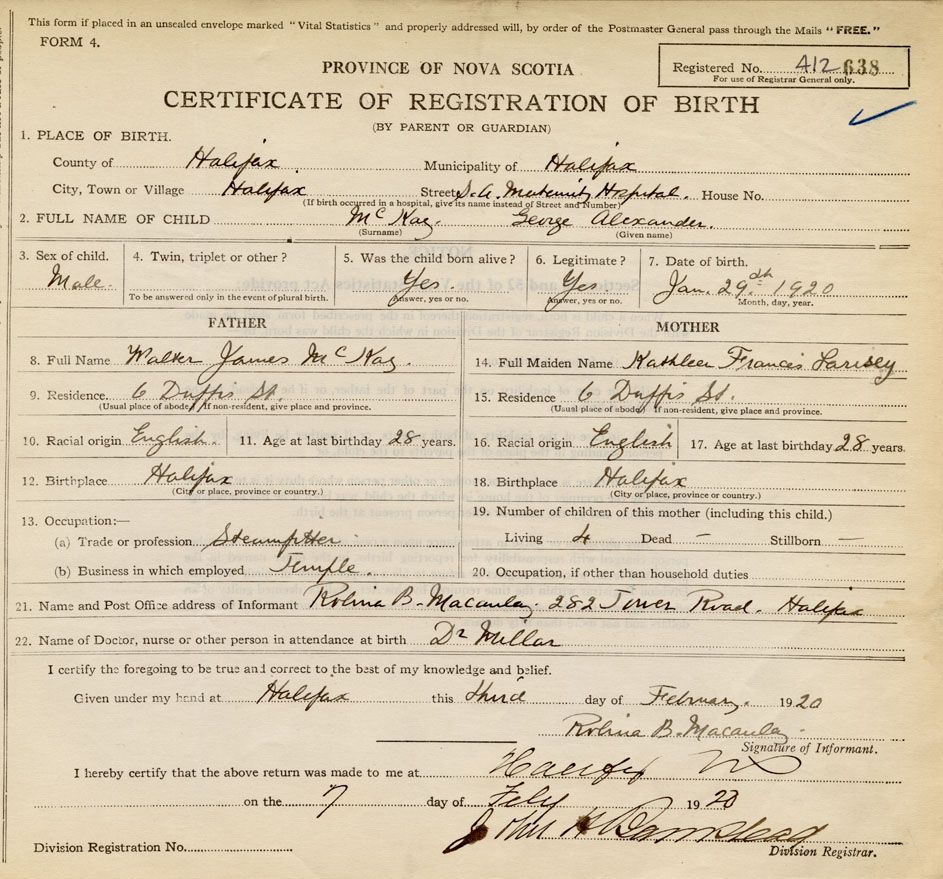 This form if placed in an unsealed envelope marked "Vital Statistics" and properly addressed will, by order of the Postmaster General pass through the Mails "FREE."
FORM 4.
Registered No. 412 638
For use of Registrar General only.
PROVINCE OF NOVA SCOTIA
CERTIFICATE OF REGISTRATION OF BIRTH
(BY PARENT OR GUARDIAN)
1. PLACE OF BIRTH.
County of Halifax Municipality of Halifax
City, Town or Village Halifax Street S. A. Maternity Hospital. House No.
(If birth occurred in a hospital, give its name instead of Street and Number)
2. FULL NAME OF CHILD McKay. George Alexander.
(Surname) (Given name)
3. Sex of child. 4. Twin, triplet or other? 5. Was the child born alive? 6. Legitimate? 7. Date of birth.
Male. Yes. Yes. Jan. 29th 1920
To be answered only in the event of plural birth. Answer, yes or no. Answer, yes or no. Month, day, year.
FATHER MOTHER
8. Full Name Walter James McKay. 14. Full Maiden Name Kathleen Francis
9. Residence. 6 Duffis St. 15. Residence 6 Duffis St.
(Usual place of abode) If non-resident, give place and province. (Usual place of abode) If non-resident, give place and province.
10. Racial origin English. 11. Age at last birthday 28 years. 16. Racial origin English 17. Age at last birthday 28 years.
12. Birthplace Halifax 18. Birthplace Halifax
(City or place, province or country.) (City or place, province or country.)
13. Occupation:— 19. Number of children of this mother (including this child.)
(a) Trade or profession Living 4 Dead — Stillborn —
(b) Business in which employed Temple. 20. Occupation, if other than household duties
21. Name and Post Office address of Informant Robina B. Macaulay. 282 Tower Road. Halifax
22. Name of Doctor, nurse or other person in attendance at birth Dr Millar
I certify the foregoing to be true and correct to the best of my knowledge and belief.
Given under my hand at Halifax this third day of February. 1920
Robina B. Macaulay
Signature of Informant.
I hereby certify that the above return was made to me at Halifax
on the 7 day of 19
John H
Division Registration No. Division Registrar.